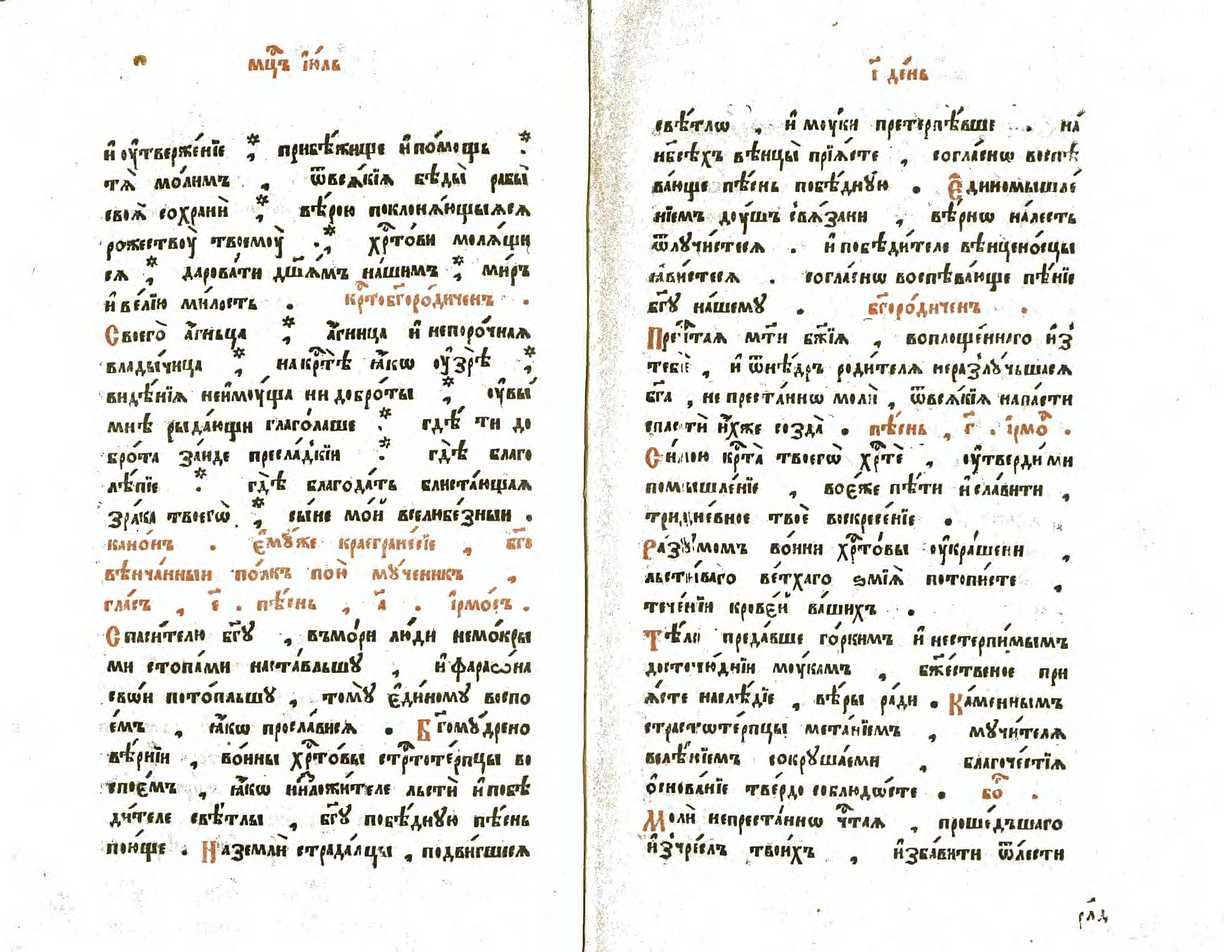 мц҃ъ і҆ю́ль
и҆ ѹ҆твержє́нїе ⁏ прибѣ́жище и҆ по́мощь ⁏
тѧ̀ мо́лимъ , ѿ всѧ́кїѧ бѣды̀ рабы̀
своѧ̀ сохранѝ ⁏ вѣ́рою поклонѧ́ющыѧсѧ
рожествꙋ̀ твоемꙋ̀ ⁏ хрⷭ҇то́ви молѧ́щи
сѧ ⁏ дарова́ти дш҃а́мъ на́шимъ ⁏ ми́ръ
и҆ ве́лїю ми́лость . крⷭ҇тобг҃оро́диченъ .
Своего̀ а҆́гньца ⁏ а҆́гница и҆ непоро́чнаѧ
влады́чица ⁏ на крⷭ҇тѣ̀ ꙗ҆́кѡ ѹ҆зрѣ̀ ⁏
видѣ́нїѧ неимѹ́ща ни добро́ты ⁏ ѹ҆вы̀
мнѣ̀ рыда́ющи глаго́лаше ⁏ гдѣ́ ти до
бро́та за́йде пресла́дкїи ⁏ гдѣ̀ благо
лѣ́пїе ⁏ гдѣ̀ благода́ть блиста́ющаѧ
зра́ка твоегѡ̀ ⁏ сы́не мо́й вселюбе́зныи .
кано́нъ . є҆мꙋ́же краегране́сїе , бг҃о
вѣнча́нныи по́лкъ пою̀ мч҃еникъ ,
гла́съ , є҃ . пѣ́снь , а҃ . і҆рмо́съ .
Спаси́телю бг҃ꙋ , въ мо́ри лю́ди немо́кры
ми стопа́ми наста́вльшꙋ , и҆ фараѡ́на
свѡи пото́пльшꙋ , томꙋ̀ є҆ди́номꙋ воспо
є́мъ , ꙗ҆́кѡ просла́висѧ . Бг҃омꙋ́дрено
вѣ́рнїи , во́ины хрⷭ҇то́вы стрⷭ҇тоте́рпцы во
спое́мъ , ꙗ҆́кѡ низложи́теле льстѝ и҆ побѣ
ди́теле свѣ́тлы , бг҃ꙋ побѣ́днꙋю пѣ́снь
пою́ще . На землѝ страда́лцы , подви́гшесѧ
і҃ де́нь
свѣ́тлѡ , и҆ мѹ́ки претерпѣ́вше . на́
нбⷭ҇ѣхъ вѣнцы̀ прїѧ́сте , согла́снѡ воспѣ
ва́юще пѣ́снь побѣ́днꙋю . Є҆диномышле́
нїемъ дѹ́шъ свѧ́зани , вѣ́рнѡ на́лесть
ѿлꙋчи́стесѧ . и҆ побѣди́теле вѣнцено́сцы
ꙗ҆ви́стесѧ . согла́снѡ воспѣва́юще пѣ́нїе
бг҃ꙋ на́шемꙋ . бг҃оро́диченъ .
Пречⷭ҇таѧ мт҃и бж҃їѧ , воплоще́ннаго и҆з̾
тебє̀ , и҆ ѿнѣ́дръ роди́телѧ неразлꙋ́чьшаѧсѧ
бг҃а , не преста́ннѡ молѝ , ѿ всѧ́кїѧ напа́сти
спастѝ и҆́хже созда̀ . пѣ́снь , г҃ . і҆рмо́ⷭ .
Си́лою крⷭ҇та̀ твоегѡ̀ хрⷭ҇тѐ , ѹ҆твердѝ ми
помышле́нїе , воє́же пѣ́ти и҆ сла́вити ,
тридне́вное твоѐ воскресе́нїе .
Ра́зꙋмомъ во́ини хрⷭ҇то́вы ѹ҆кра́шени ,
льсти́ваго ве́тхаго ѕмі́ѧ потописте ,
тече́нїи крове́й ва́шихъ .
Тѣ́ло преда́вше го́ркимъ и҆ нестерпи́мымъ
досточю́днїи мѹ́камъ , бж҃е́ственое при
ѧ́сте наслѣ́дїе , вѣ́ры ра́ди . Ка́меннымъ
страстѡте́рпцы мета́нїемъ , мꙋчи́телѧ
велѣ́нїемъ сокрꙋша́еми , благоче́стїѧ
ѡ҆снова́нїе тве́рдо соблюдо́сте . бо҃ .
Молѝ непреста́ннѡ чⷭ҇таѧ , проше́дъшаго
и҆з̾чре́слъ твои́хъ , и҆зба́вити ѿ ле́сти
рл҃д